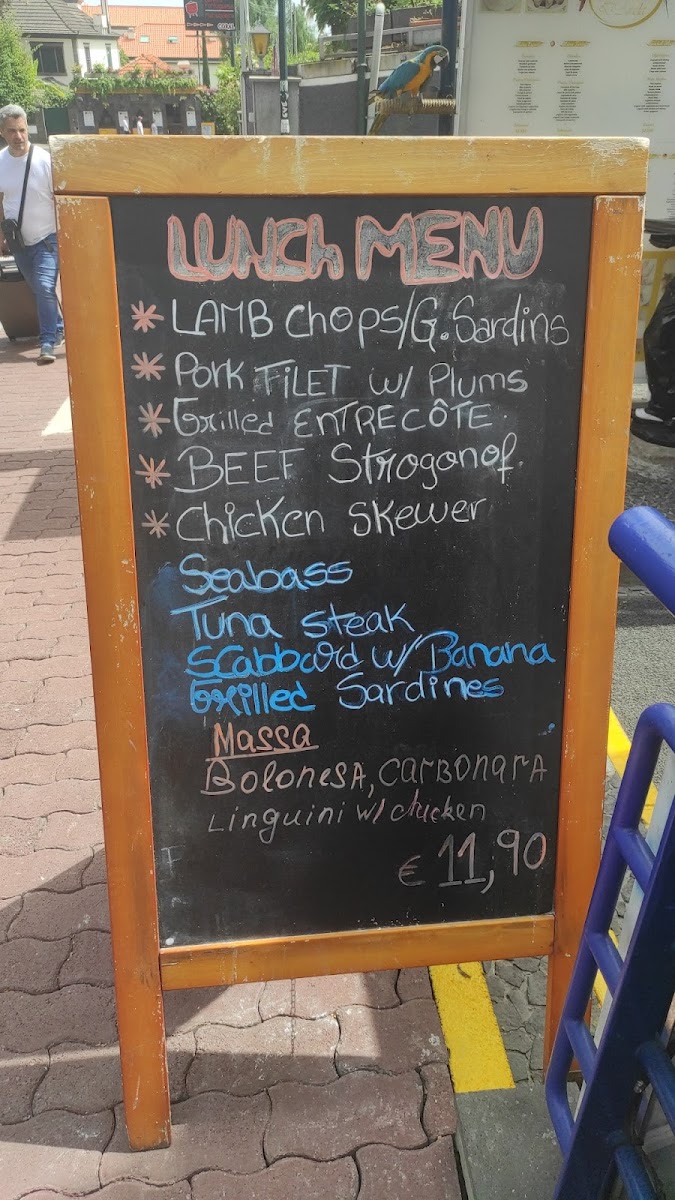 LUNCH MENU
* LAMB CHOPS/G. Sardins
* Pork FiLET w/ Plums
* Grilled ENTRECÔTE
* BEEF Strogonof.
* Chicken Skewer
Seabass
Tuna steak
SCabbard w/ Banana
Grilled Sardines
Massa
BoloNesA, CARBONARA
Linguini w/ chicken
€ 11,90